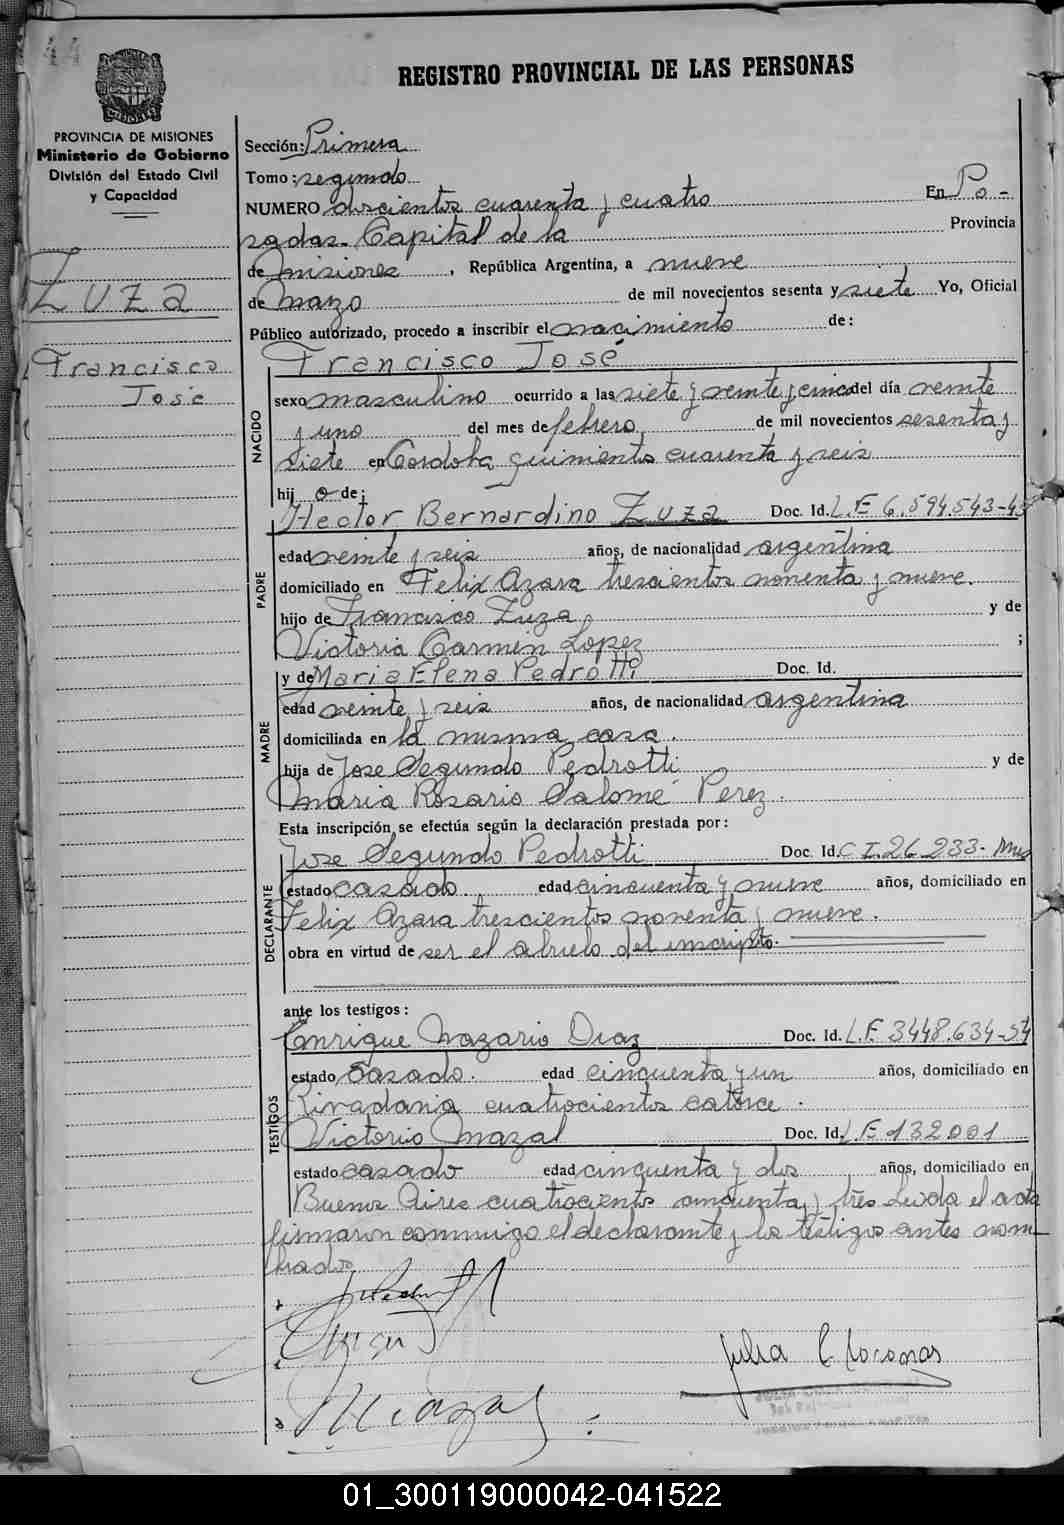 44
PROVINCIA DE MISIONES
Ministerio de Gobierno
División del Estado Civil
y Capacidad
Zuza
Francisco
José
REGISTRO PROVINCIAL DE LAS PERSONAS
Sección: Primera
Tomo: segundo
NUMERO doscientos cuarenta y cuatro En Po-
sadas- Capital de la Provincia
de Misiones, República Argentina, a nueve
de Marzo de mil novecientos sesenta y siete Yo, Oficial
Público autorizado, procedo a inscribir el nacimiento de:
Francisco José
NACIDO
sexo masculino ocurrido a las siete y veinte y cinco del día veinte
y uno del mes de febrero de mil novecientos sesenta y
siete en Cordoba quinientos cuarenta y seis
hij o de:
Hector Bernardino Zuza Doc. Id. L.E 6.594.543-
PADRE
edad veinte y seis años, de nacionalidad argentina
domiciliado en Felix Azara trescientos noventa y nueve.
hijo de Francisco Zuza y de
Victoria Carmen Lopez ;
y de Maria Elena Pedrotti Doc. Id.
MADRE
edad veinte y seis años, de nacionalidad argentina
domiciliada en la misma casa.
hija de Jose Segundo Pedrotti y de
Maria Rosario Salomé Perez.
Esta inscripción se efectúa según la declaración prestada por:
Jose Segundo Pedrotti Doc. Id. C I. 26.233- Mnes
DECLARANTE
estado casado edad cincuenta y nueve años, domiciliado en
Felix Azara trescientos noventa y nueve.
obra en virtud de ser el abuelo del inscripto.
ante los testigos:
Enrique Nazario Diaz Doc. Id. L.E. 3448.634-54
TESTIGOS
estado casado. edad cincuenta y un años, domiciliado en
Rivadavia cuatrocientos catorce.
Victorio Mazal Doc. Id. L.E 132001
estado casado edad cincuenta y dos años, domiciliado en
Buenos Aires cuatrocientos cincuenta y tres Leida el acta
firmaron conmigo el declarante y los testigos antes nom-
brados
01_300119000042-041522